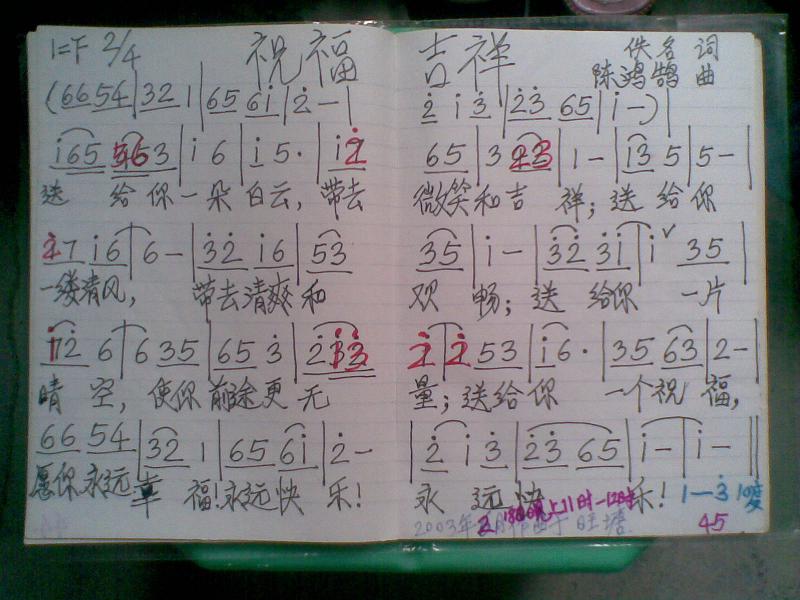 1=F 2/4 祝福 吉祥 佚名 词
陈鸿鹄 曲
(66 54|32 1|65 6i̇|2̇ -| 2̇ i̇ 3̇|2̇3̇ 65|i̇ -)|
i̇65 563|i̇ 6|i̇ 5·|i̇2̇ 65|3 23|1 -|i̇3 5|5 -|
送 给你一朵白云,带去 微笑和吉 祥;送 给你
2̇7 i̇6|6 -|3̇2̇ i̇6|53 35|i̇ -|3̇2̇ 3̇i̇|i̇ ∨ 35|
一缕清风, 带去清爽和 欢 畅;送 给你 一片
i̇2̇ 6|6 35|65 3̇| 2̇|2̇ 53|i̇6·|35 63|2 -|
晴 空,使你前途更无 量;送给你 一个祝 福,
66 54|32 1|65 6i̇|2̇ -|2̇ i̇ 3̇|2̇3̇ 65|i̇ -|i̇ -‖
愿你永远幸 福!永远快 乐! 永 远快 乐! 1—3̇ 10度
2003年2月18日晚上11时—12时 45